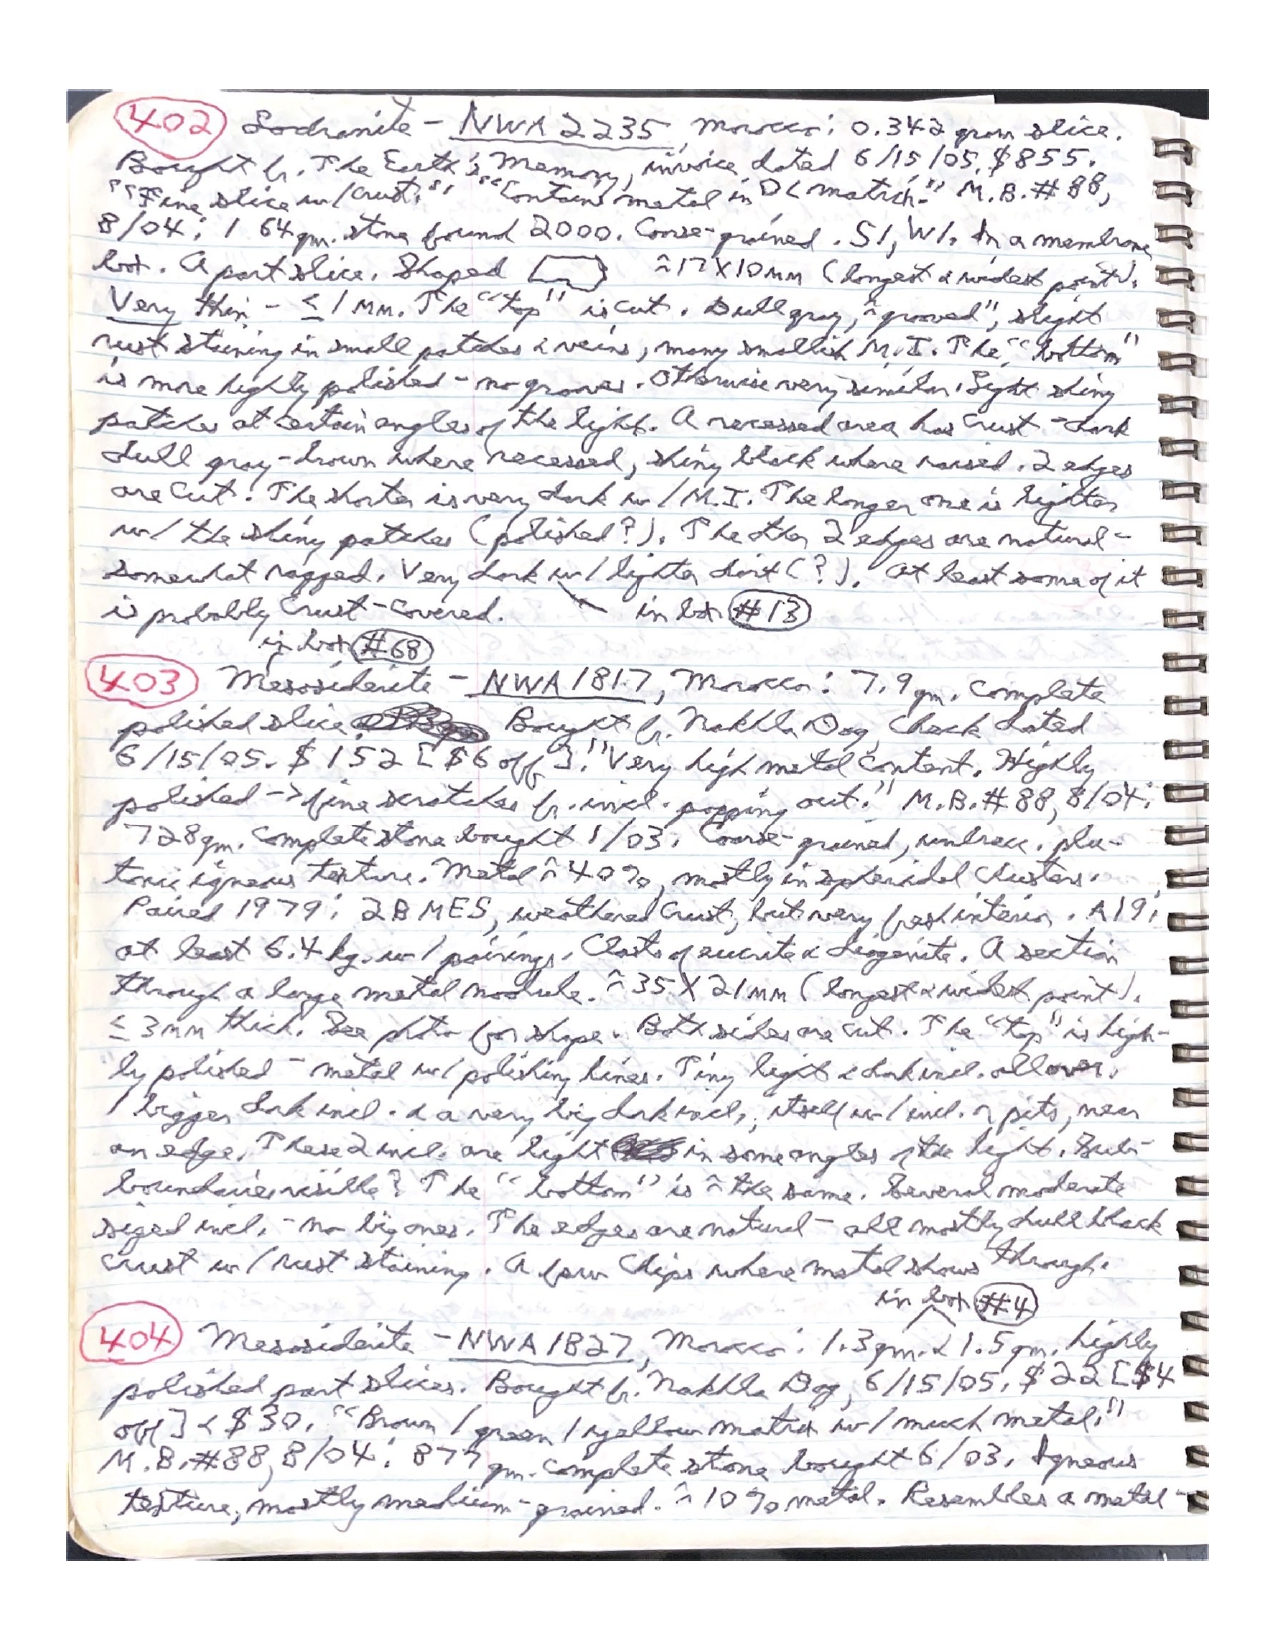 402 Lodranite - NWA 2235, Morocco: 0.342 gram slice.
Bought fr. The Earth's Memory, invoice dated 6/15/05. $855.
"Fine slice w/crust." "Contains metal in OL matrix." M.B. #88,
8/04: 1 64gm. stone found 2000. Coarse-grained. S1, W1. In a membrane
box. A part slice. Shaped ≈17X10mm (longest & widest point).
Very thin - ≤1mm. The "top" is cut. Dull gray, ≈"grooved", slight
rust staining in small patches & veins, many smallish M.I. The "bottom"
is more highly polished - no grooves. Otherwise very similar. Light shiny
patches at certain angles of the light. A recessed area has crust - dark
dull gray-brown where recessed, shiny black where raised. 2 edges
are cut. The shorter is very dark w/M.I. The longer one is lighter
w/the shiny patches (polished?). The other 2 edges are natural -
somewhat ragged. Very dark w/lighter dirt(?). At least some of it
is probably crust-covered. in box #13
in box #68
403 Mesosiderite - NWA 1817, Morocco: 7.9gm. complete
polished slice. Bought fr. Nakhla Dog, check dated
6/15/05. $152 [$6 off]. "Very high metal content. Highly
polished -> fine scratches fr. incl. popping out." M.B. #88, 8/04:
728gm. complete stone bought 1/03. Coarse-grained, unbrecc. plu-
tonic igneous texture. Metal ≈40%, mostly in spheroidal clusters.
Paired 1979: 2B MES, weathered crust, but very fresh interior. A19:
at least 6.4 kg. w/pairings. Clasts of eucrite & diogenite. A section
through a large metal nodule. ≈35X21mm (longest & widest point).
≤3mm thick. See photo for shape. Both sides are cut. The "top" is high-
ly polished - metal w/polishing lines. Tiny light & dark incl. all over.
1 bigger dark incl. & a very big dark incl., itself w/incl. or pits, near
an edge. These 2 incl. are light in some angles of the light. Sub-
boundaries visible? The "bottom" is ≈the same. Several moderate
sized incl. - no big ones. The edges are natural - all mostly dull black
crust w/rust staining. A few chips where metal shows through.
in box #4
404 Mesosiderite - NWA 1827, Morocco: 1.3gm. & 1.5gm. highly
polished part slices. Bought fr. Nakhla Dog, 6/15/05. $22 [$4
off] & $30. "Brown/green/yellow matrix w/much metal."
M.B. #88, 8/04: 877gm. complete stone bought 6/03. Igneous
texture, mostly medium-grained. ≈10% metal. Resembles a metal-